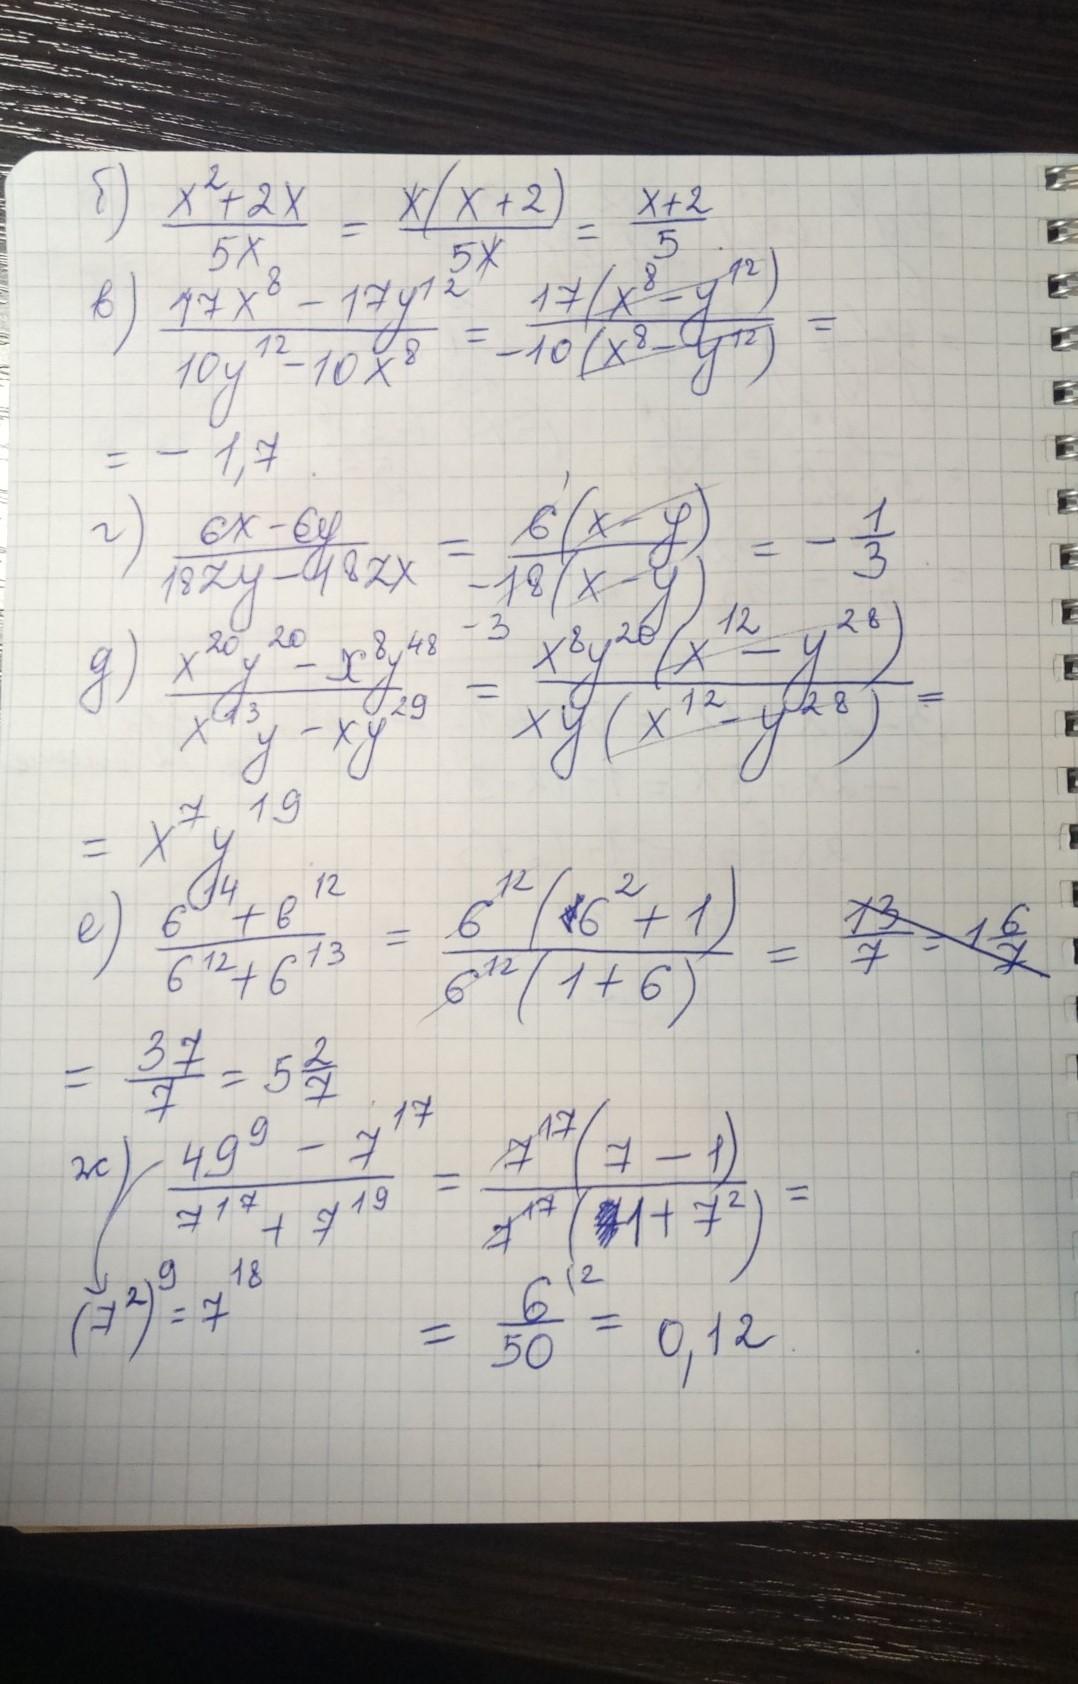 б) (x²+2x)/(5x) = (x(x+2))/(5x) = (x+2)/5
в) (17x⁸ - 17y¹²)/(10y¹² - 10x⁸) = (17(x⁸ - y¹²))/(-10(x⁸ - y¹²)) =
= - 1,7
г) (6x - 6y)/(18zy - 18zx) = (6(x - y))/(-18(x - y)) = - 1/3
1
-3
д) (x²⁰y²⁰ - x⁸y⁴⁸)/(x¹³y - xy²⁹) = (x⁸y²⁰(x¹² - y²⁸))/(xy(x¹² - y²⁸)) =
= x⁷y¹⁹
е) (6¹⁴ + 6¹²)/(6¹² + 6¹³) = (6¹²(6² + 1))/(6¹²(1 + 6)) = 13/7 = 1 6/7
= 37/7 = 5 2/7
ж) (49⁹ - 7¹⁷)/(7¹⁷ + 7¹⁹) = (7¹⁷(7 - 1))/(7¹⁷(1 + 7²)) =
(7²)⁹ = 7¹⁸
= 6/50 = 0,12